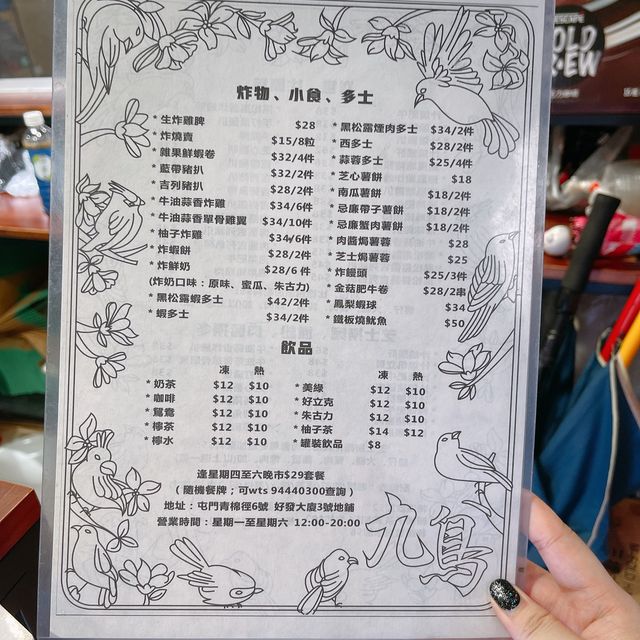 炸物、小食、多士
* 生炸雞脾 $28
* 炸燒賣 $15/8粒
* 雜果鮮蝦卷 $32/4件
* 藍帶豬扒 $32/2件
* 吉列豬扒 $28/2件
* 牛油蒜香炸雞 $34/6件
* 牛油蒜香單骨雞翼 $34/10件
* 柚子炸雞 $34/6件
* 炸蝦餅 $28/2件
* 炸鮮奶 $28/6 件
(炸奶口味：原味、蜜瓜、朱古力)
* 黑松露蝦多士 $42/2件
* 蝦多士 $34/2件
* 黑松露煙肉多士 $34/2件
* 西多士 $28/2件
* 蒜蓉多士 $25/4件
* 芝心薯餅 $18
* 南瓜薯餅 $18/2件
* 忌廉帶子薯餅 $18/2件
* 忌廉蟹肉薯餅 $18/2件
* 肉醬焗薯蓉 $28
* 芝士焗薯蓉 $25
* 炸饅頭 $25/3件
* 金菇肥牛卷 $28/2串
* 鳳梨蝦球 $34
* 鐵板燒魷魚 $50
飲品
凍 熱
* 奶茶 $12 $10
* 咖啡 $12 $10
* 鴛鴦 $12 $10
* 檸茶 $12 $10
* 檸水 $12 $10
凍 熱
* 美綠 $12 $10
* 好立克 $12 $10
* 朱古力 $12 $10
* 柚子茶 $14 $12
* 罐裝飲品 $8
逢星期四至六晚市$29套餐
(隨機餐牌；可wts 94440300查詢)
地址：屯門青棉徑6號 好發大廈3號地鋪
營業時間：星期一至星期六 12:00-20:00
九鳥
OLD